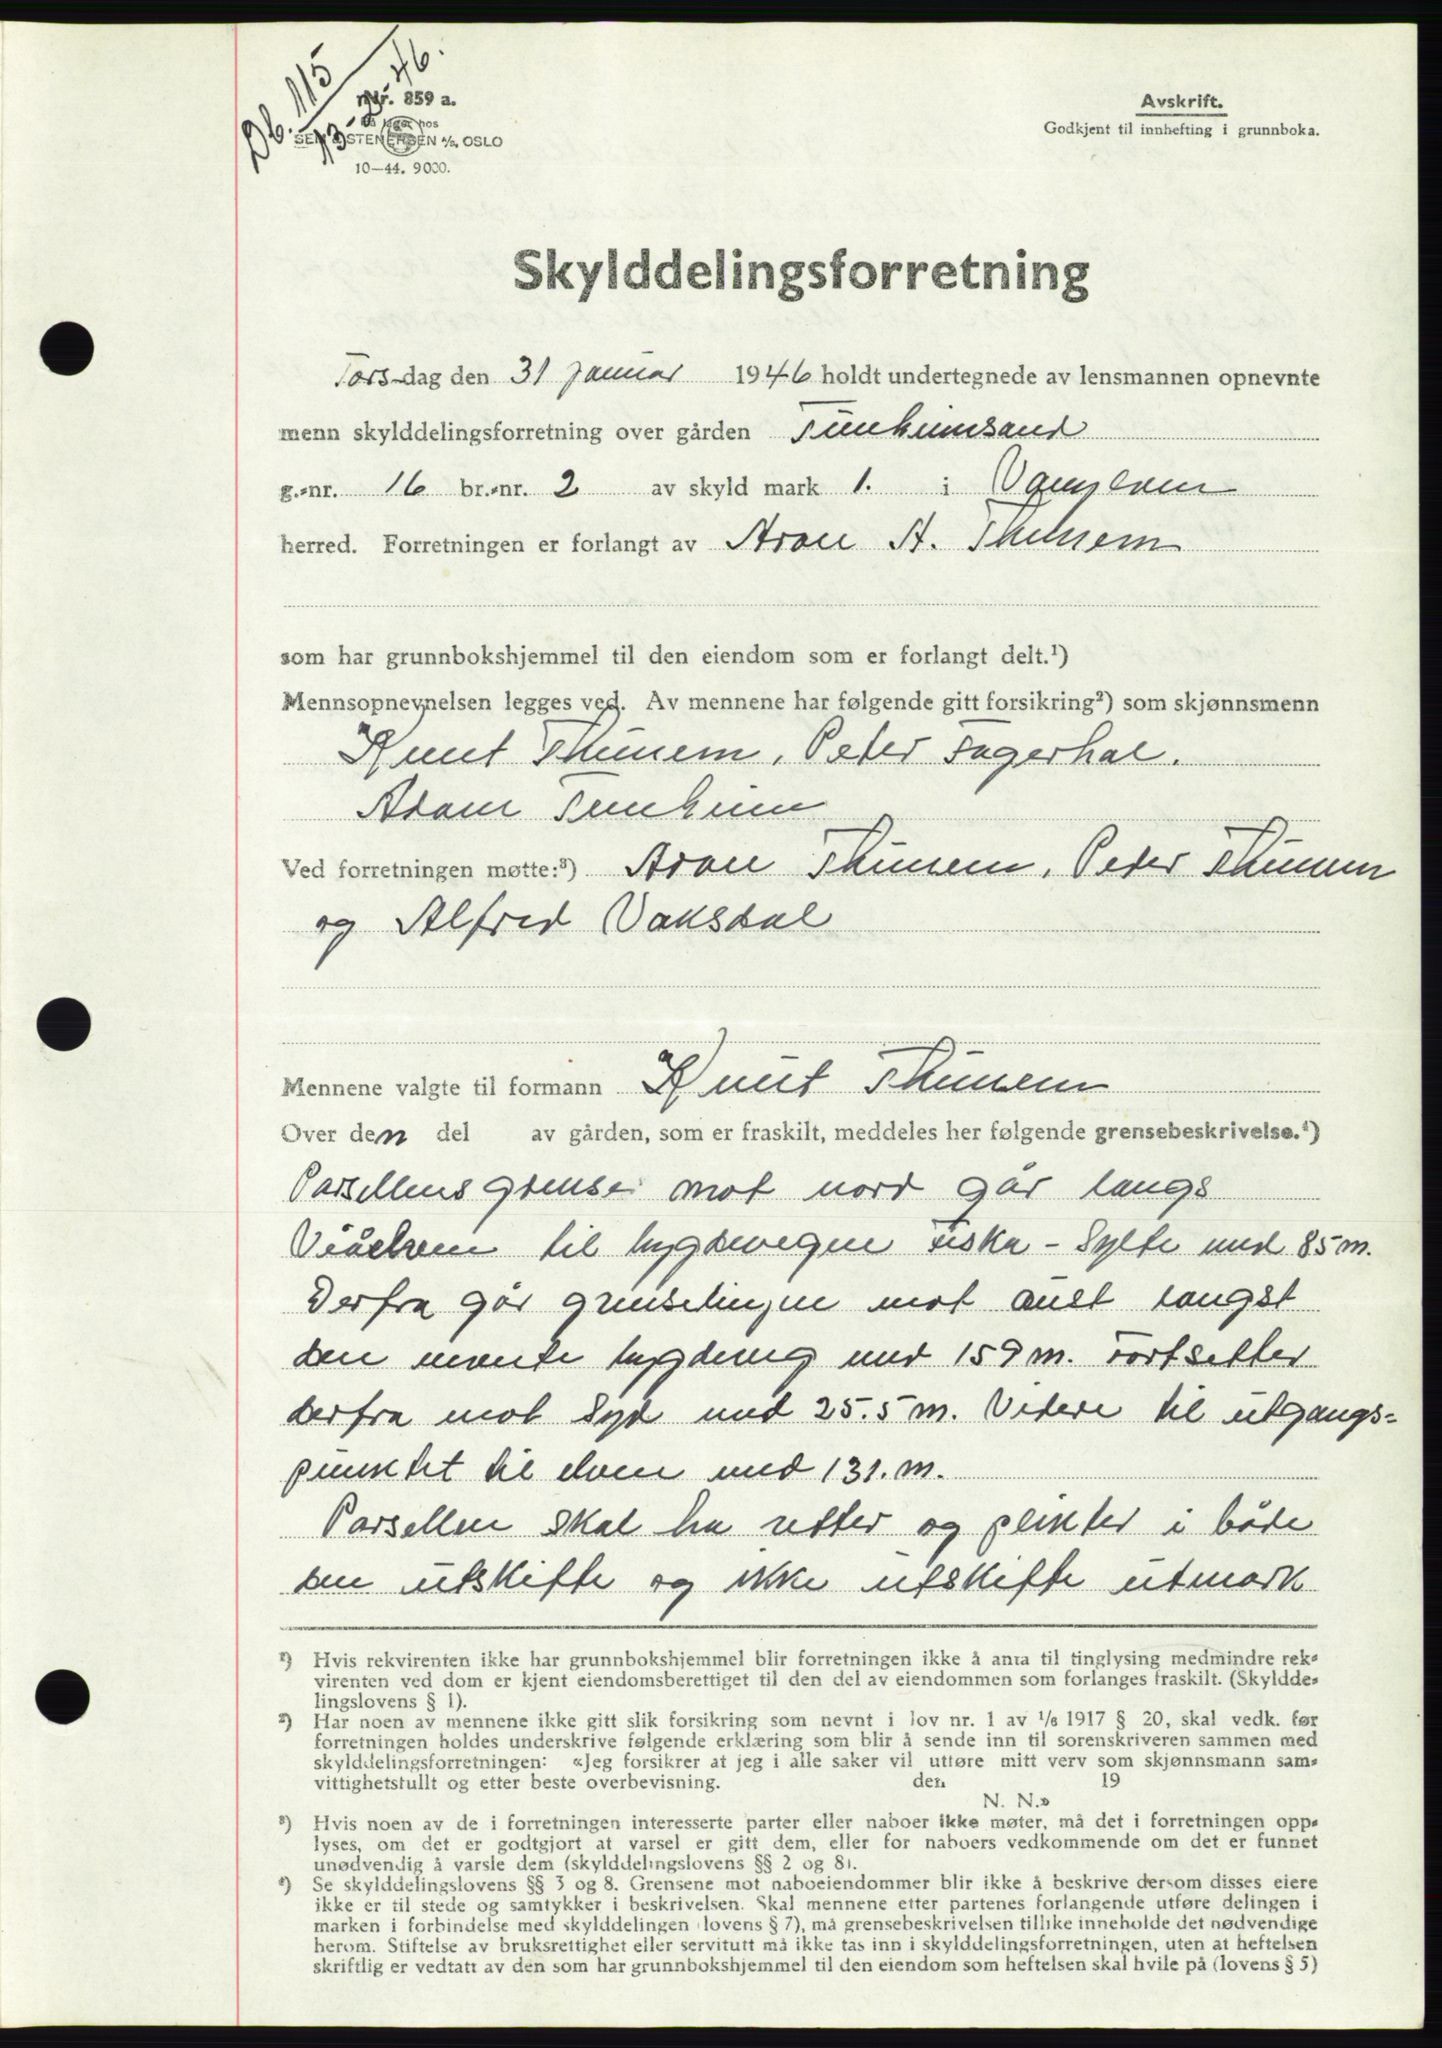 Db. 115
13-2-46.
Nr. 859 a.
På lager hos
SEM & STENERSEN A/S, OSLO
10—44. 9000.
Avskrift.
Godkjent til innhefting i grunnboka.
Skylddelingsforretning
Tors-dag den 31 januar 1946 holdt undertegnede av lensmannen opnevnte
menn skylddelingsforretning over gården Tunheimsand
g.-nr. 16 br.-nr. 2 av skyld mark 1. i Vanylven
herred. Forretningen er forlangt av Aron A. Thunem
som har grunnbokshjemmel til den eiendom som er forlangt delt.¹)
Mennsopnevnelsen legges ved. Av mennene har følgende gitt forsikring²) som skjønnsmenn
Knut Thunem, Peter Fagerhal.
Adam Tunheim
Ved forretningen møtte:³) Aron Thunem, Peder Thunem
og Alfred Vaksdal
Mennene valgte til formann Knut Thunem
Over den del av gården, som er fraskilt, meddeles her følgende grensebeskrivelse.⁴)
Parsellens grense mot nord går langs
til bygdevegen Fiska - Sylte med 85 m.
Derfra går grenselinjen mot aust langst
den nevnte bygdeveg med 159 m. Fortsetter
derfra mot Syd med 25.5 m. Videre til utgangs=
punktet til elven med 131. m.
Parsellen skal ha retter og plikter i både
den utskifte og ikke utskifte utmark
¹) Hvis rekvirenten ikke har grunnbokshjemmel blir forretningen ikke å anta til tinglysing medmindre rek-
virenten ved dom er kjent eiendomsberettiget til den del av eiendommen som forlanges fraskilt. (Skyldde-
lingslovens § 1).
²) Har noen av mennene ikke gitt slik forsikring som nevnt i lov nr. 1 av 1/6 1917 § 20, skal vedk. før
forretningen holdes underskrive følgende erklæring som blir å sende inn til sorenskriveren sammen med
skylddelingsforretningen: «Jeg forsikrer at jeg i alle saker vil utføre mitt verv som skjønnsmann sam-
vittighetsfullt og etter beste overbevisning. den 19
N. N.»
³) Hvis noen av de i forretningen interesserte parter eller naboer ikke møter, må det i forretningen opp-
lyses, om det er godtgjort at varsel er gitt dem, eller for naboers vedkommende om det er funnet
unødvendig å varsle dem (skylddelingslovens §§ 2 og 8).
⁴) Se skylddelingslovens §§ 3 og 8. Grensene mot naboeiendommer blir ikke å beskrive dersom disses eiere
ikke er til stede og samtykker i beskrivelsen. Skal mennene etter partenes forlangende utføre delingen i
marken i forbindelse med skylddelingen (lovens § 7), må grensebeskrivelsen tillike inneholde det nødvendige
herom. Stiftelse av bruksrettighet eller servitutt må ikke tas inn i skylddelingsforretningen, uten at heftelsen
skriftlig er vedtatt av den som har grunnbokshjemmel til den eiendom som heftelsen skal hvile på (lovens § 5)